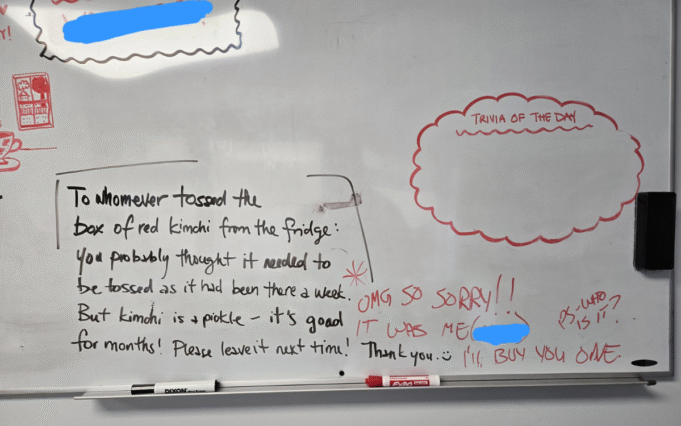 r!
TRIVIA OF THE DAY
To whomever tossed the
box of red kimchi from the fridge:
You probably thought it needed to
be tossed as it had been there a week.
But kimchi is a pickle – it's good
for months! Please leave it next time! Thank you. ☺
OMG SO SORRY!!
IT WAS ME(
I'll BUY YOU ONE
PS-WHO
IS IT?
DIXON
EXPO